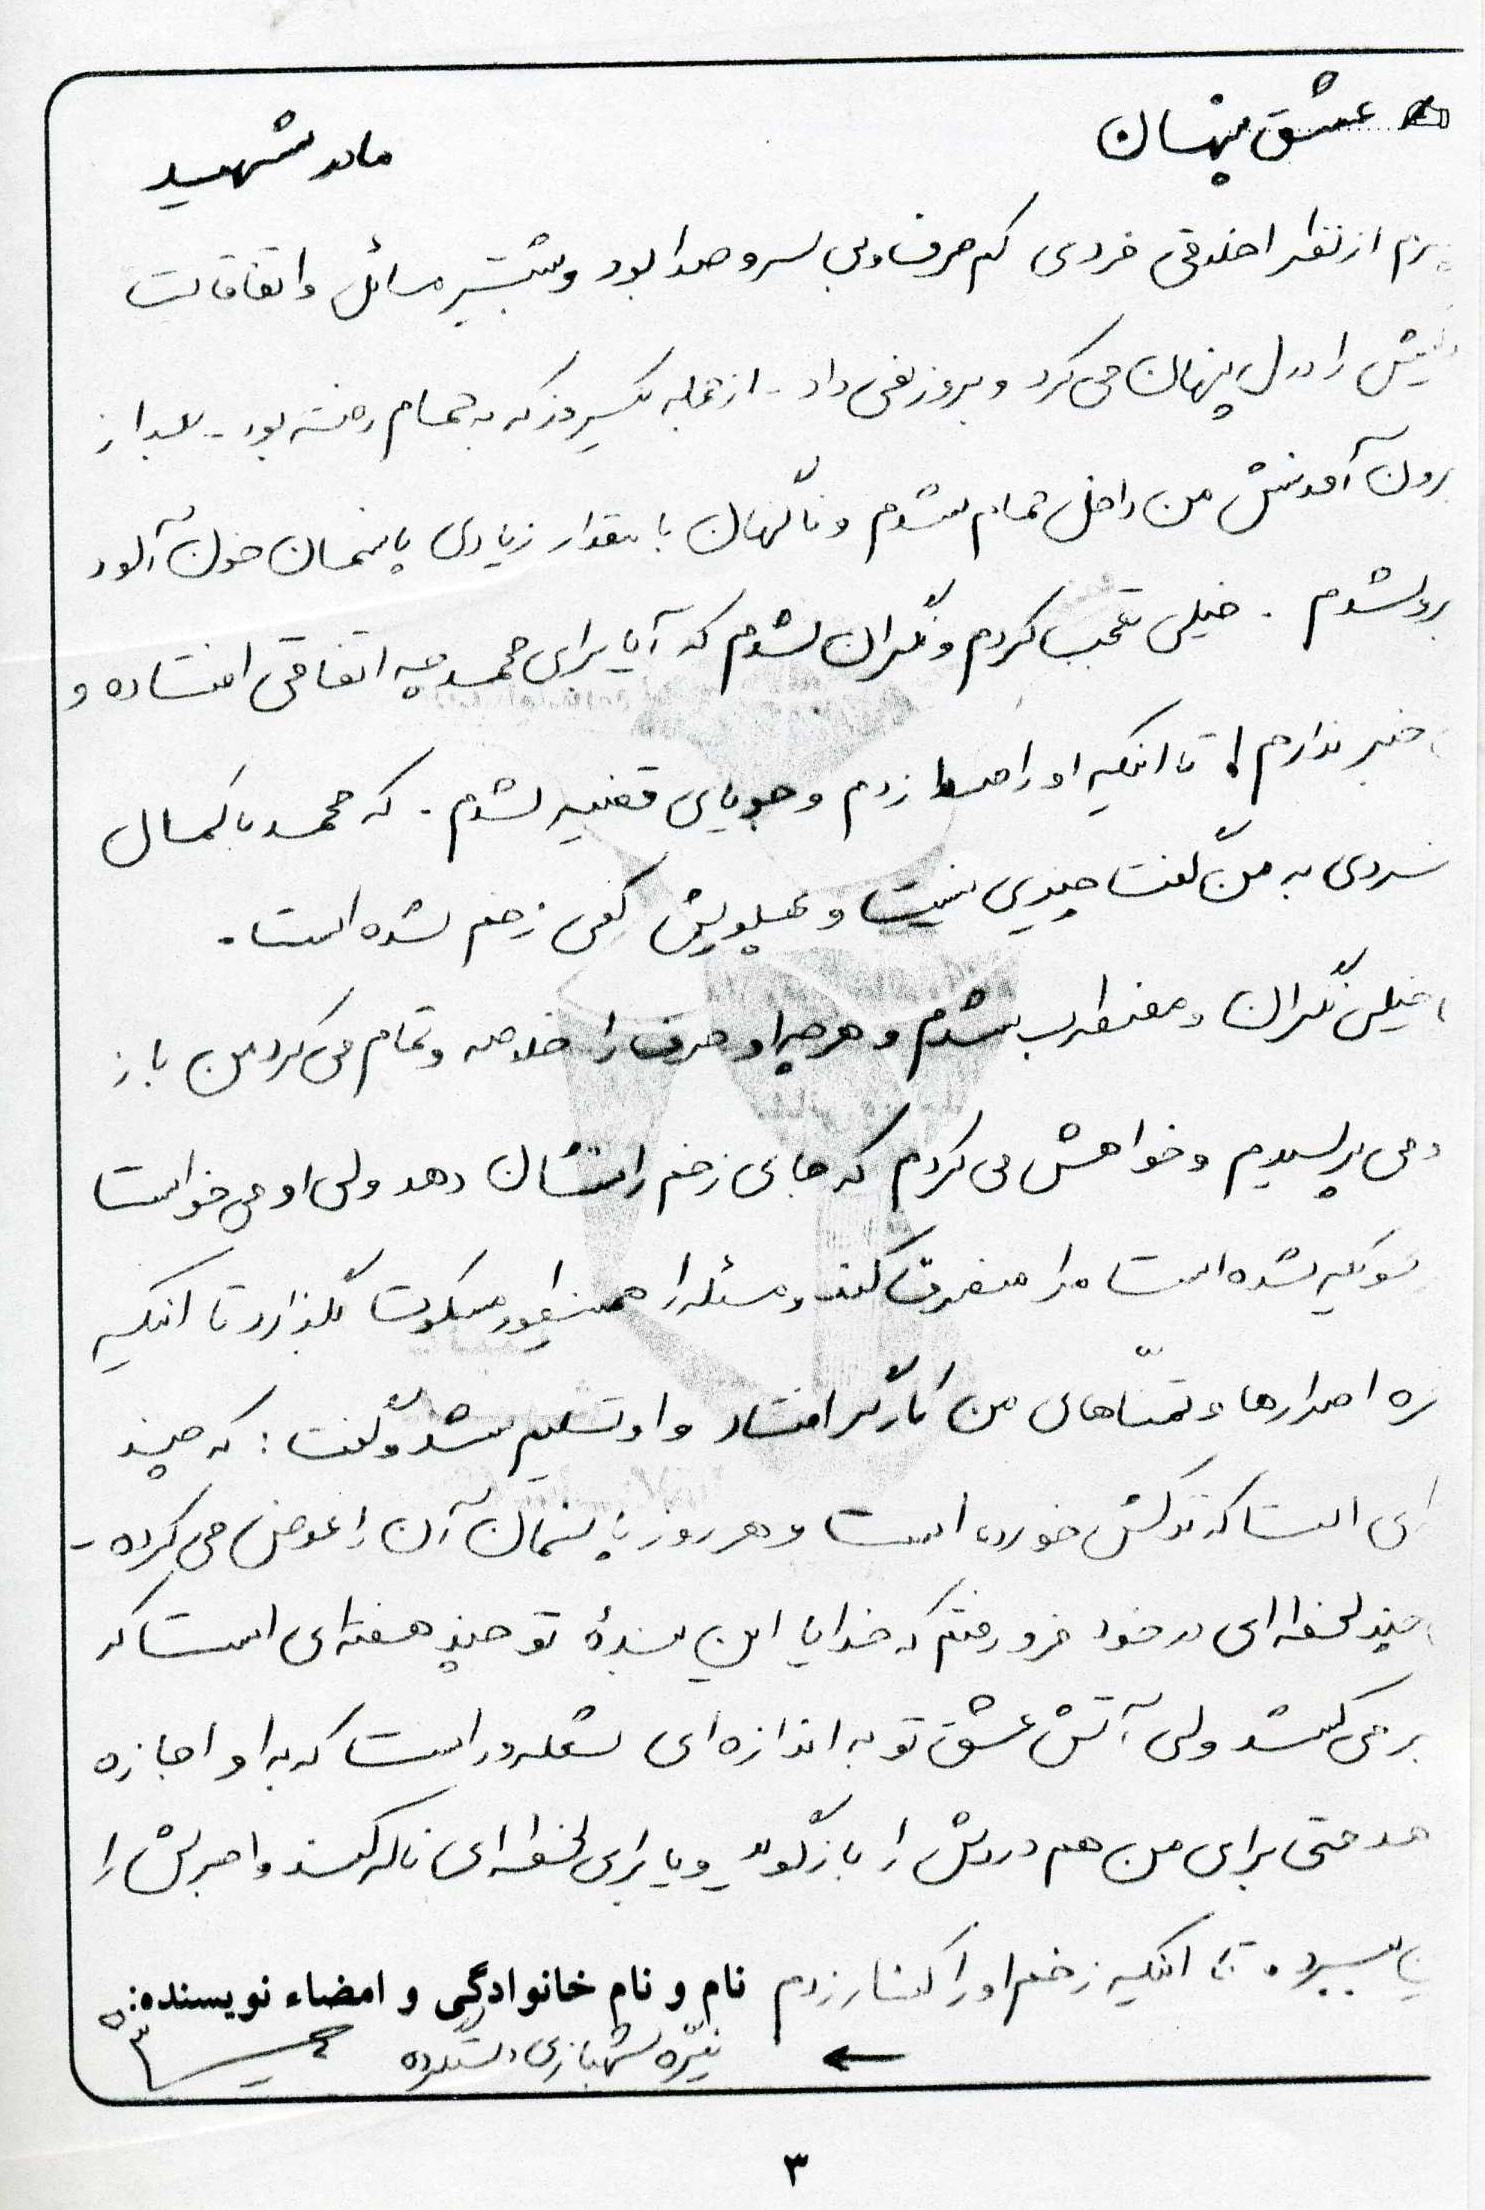 عشق پنهان
مادر شهید
از نظر اخلاقی فردی کم حرف و بی سر و صدا بود و بیشتر مسائل و اتفاقات
را در دل پنهان می کرد و بروز نمی داد - از جمله یکروز که به حمام رفته بود - بعد از
آمدنش من داخل حمام شدم و ناگهان با مقدار زیادی پانسمان خون آلود
شدم . خیلی تعجب کردم و نگران شدم که آیا برای محمد چه اتفاقی افتاده و
خبر ندارم ! تا اینکه او را صدا زدم و جویای قضیه شدم . که محمد با کمال
به من گفت چیزی نیست و پهلویش کمی زخم شده است .
خیلی نگران و مضطرب شدم و هر چه او حرف را خلاصه و تمام می کرد من باز
می پرسیدم و خواهش می کردم که جای زخم را نشان دهد ولی او می خواست
شده است مرا منصرف کند و مسئله را همینطور مسکوت بگذارد تا اینکه
اصرارها و تمنّاهای من کارگر افتاد و او تسلیم شد و گفت : که چند
است که ترکش خورده است و هر روز پانسمان آن را عوض می کرده -
چند لحظه ای در خود فرو رفتم که خدایا این بندۀ تو چند هفته ای است که
می کشد ولی آتش عشق تو به اندازه ای شعله ور است که به او اجازه
حتی برای من هم دردش را بازگو کند و یا برای لحظه ای ناله کند و اجرش را
ببرد . تا اینکه زخم او را کنار زدم
نام و نام خانوادگی و امضاء نویسنده:
نیّره شهبازی
۳